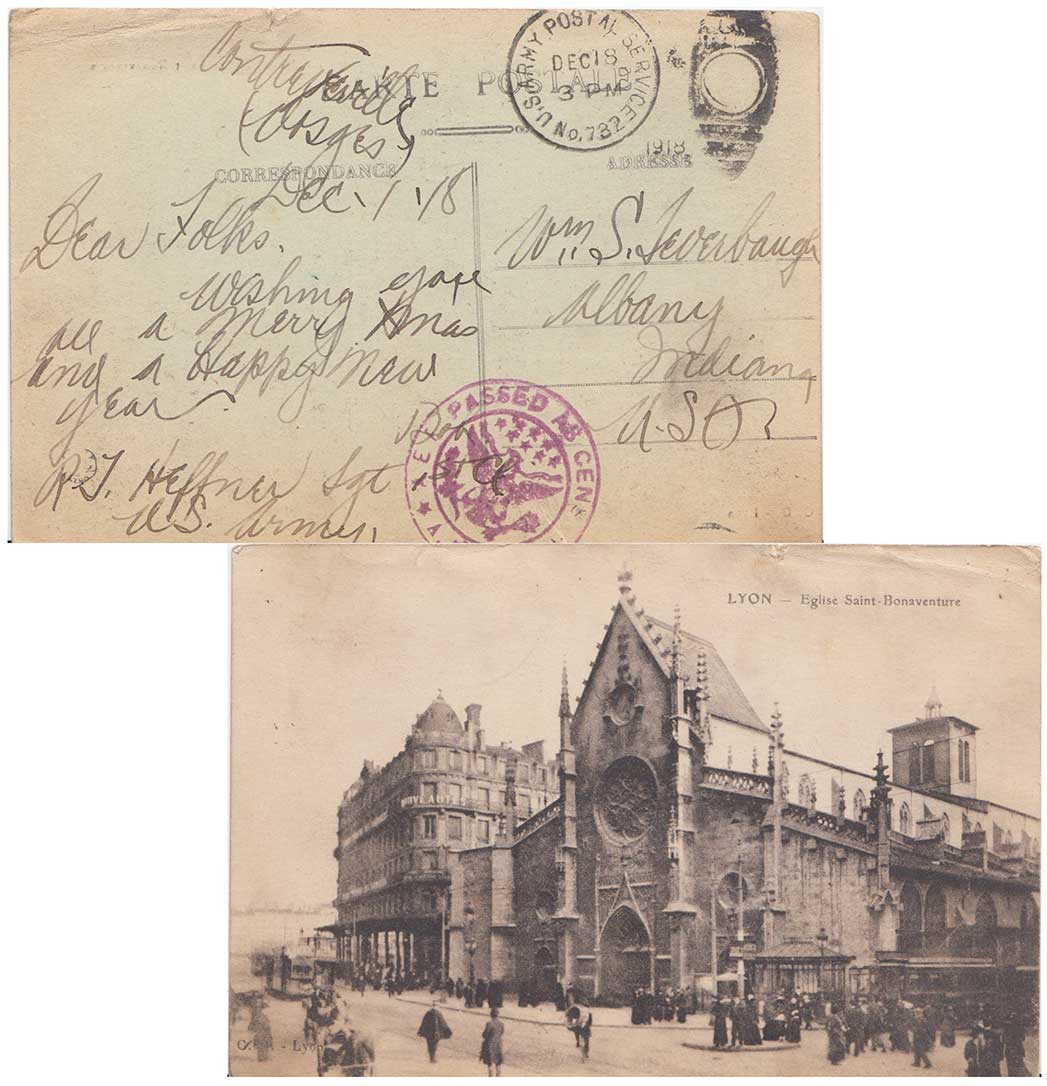 Contrexeville
CARTE POSTALE
(Vosges)
U.S. ARMY POSTAL SERVICE
DEC 18
3 PM
No. 782
1918
CORRESPONDANCE
ADRESSE
Dec. 1/18
Dear Folks.
Wishing you
all a Merry Xmas
and a Happy New
Year.
R.J. Heffner Sgt 1st Cl
U.S. Army.
Wm. S. Leverbaugh
Albany
Indiana
U.S.A.
PASSED AS CENS
LYON — Eglise Saint-Bonaventure
NOUVEAUTES
- Lyon